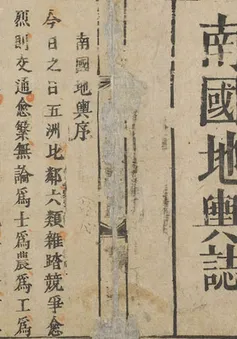 南國地輿誌
南國地輿序
今日之日五洲比鄰六類雜踏競爭愈
烈則交通愈繁無論爲士爲農爲工爲